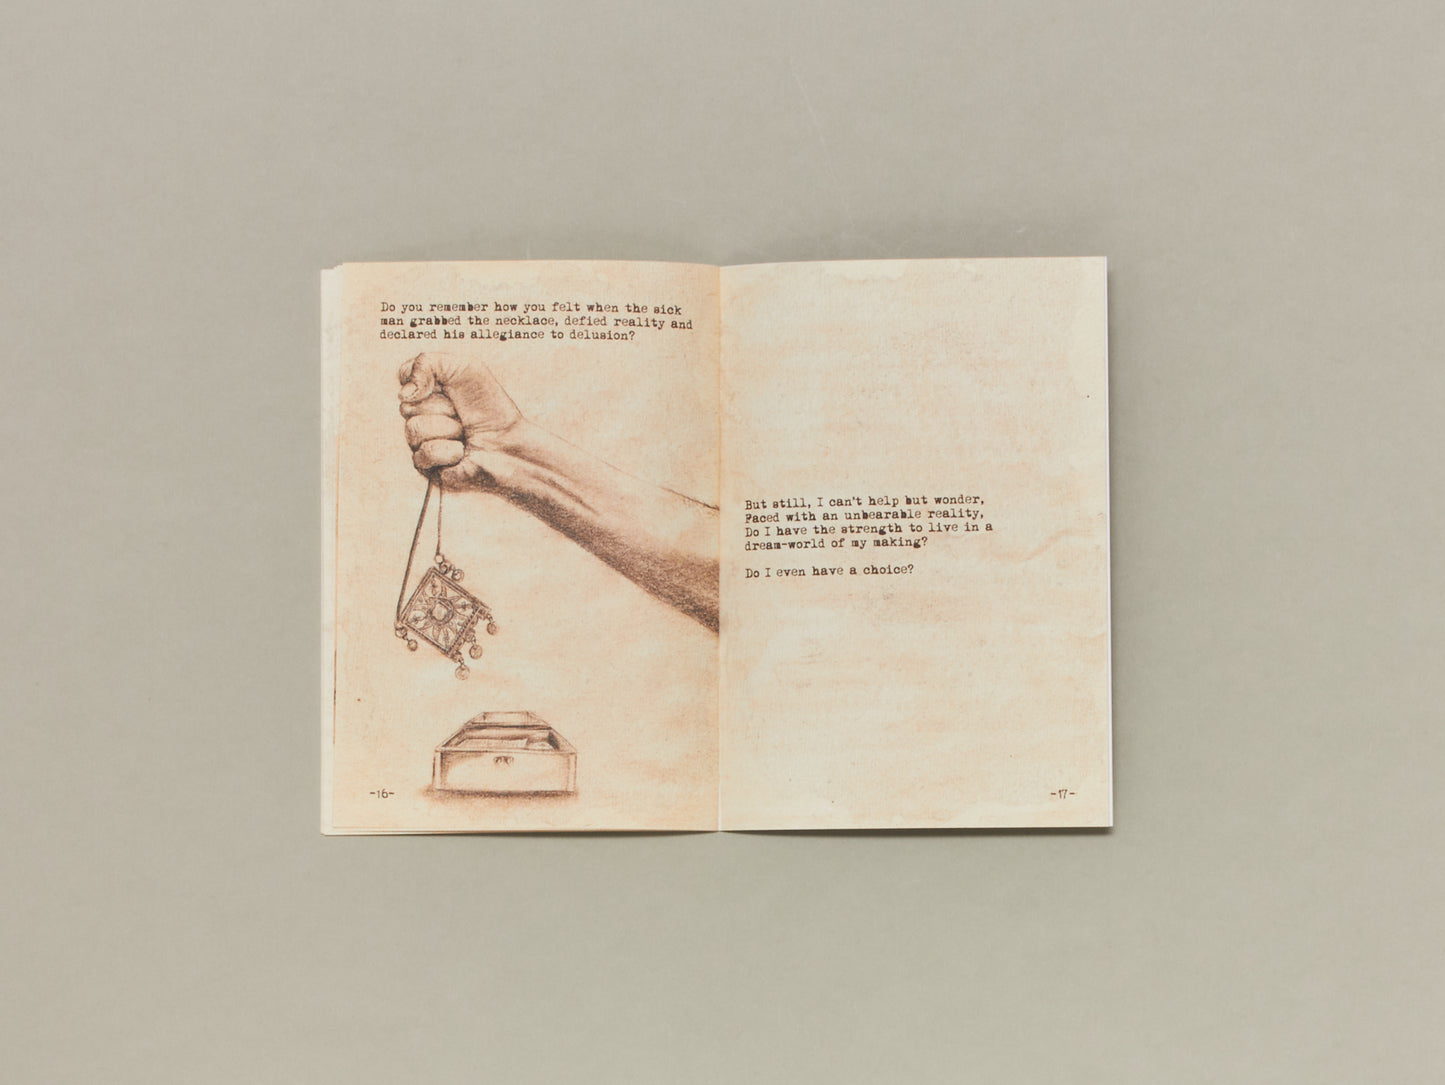 Do you remember how you felt when the sick
man grabbed the necklace, defied reality and
declared his allegiance to delusion?
-16-
But still, I can't help but wonder,
Faced with an unbearable reality,
Do I have the strength to live in a
dream-world of my making?
Do I even have a choice?
-17-